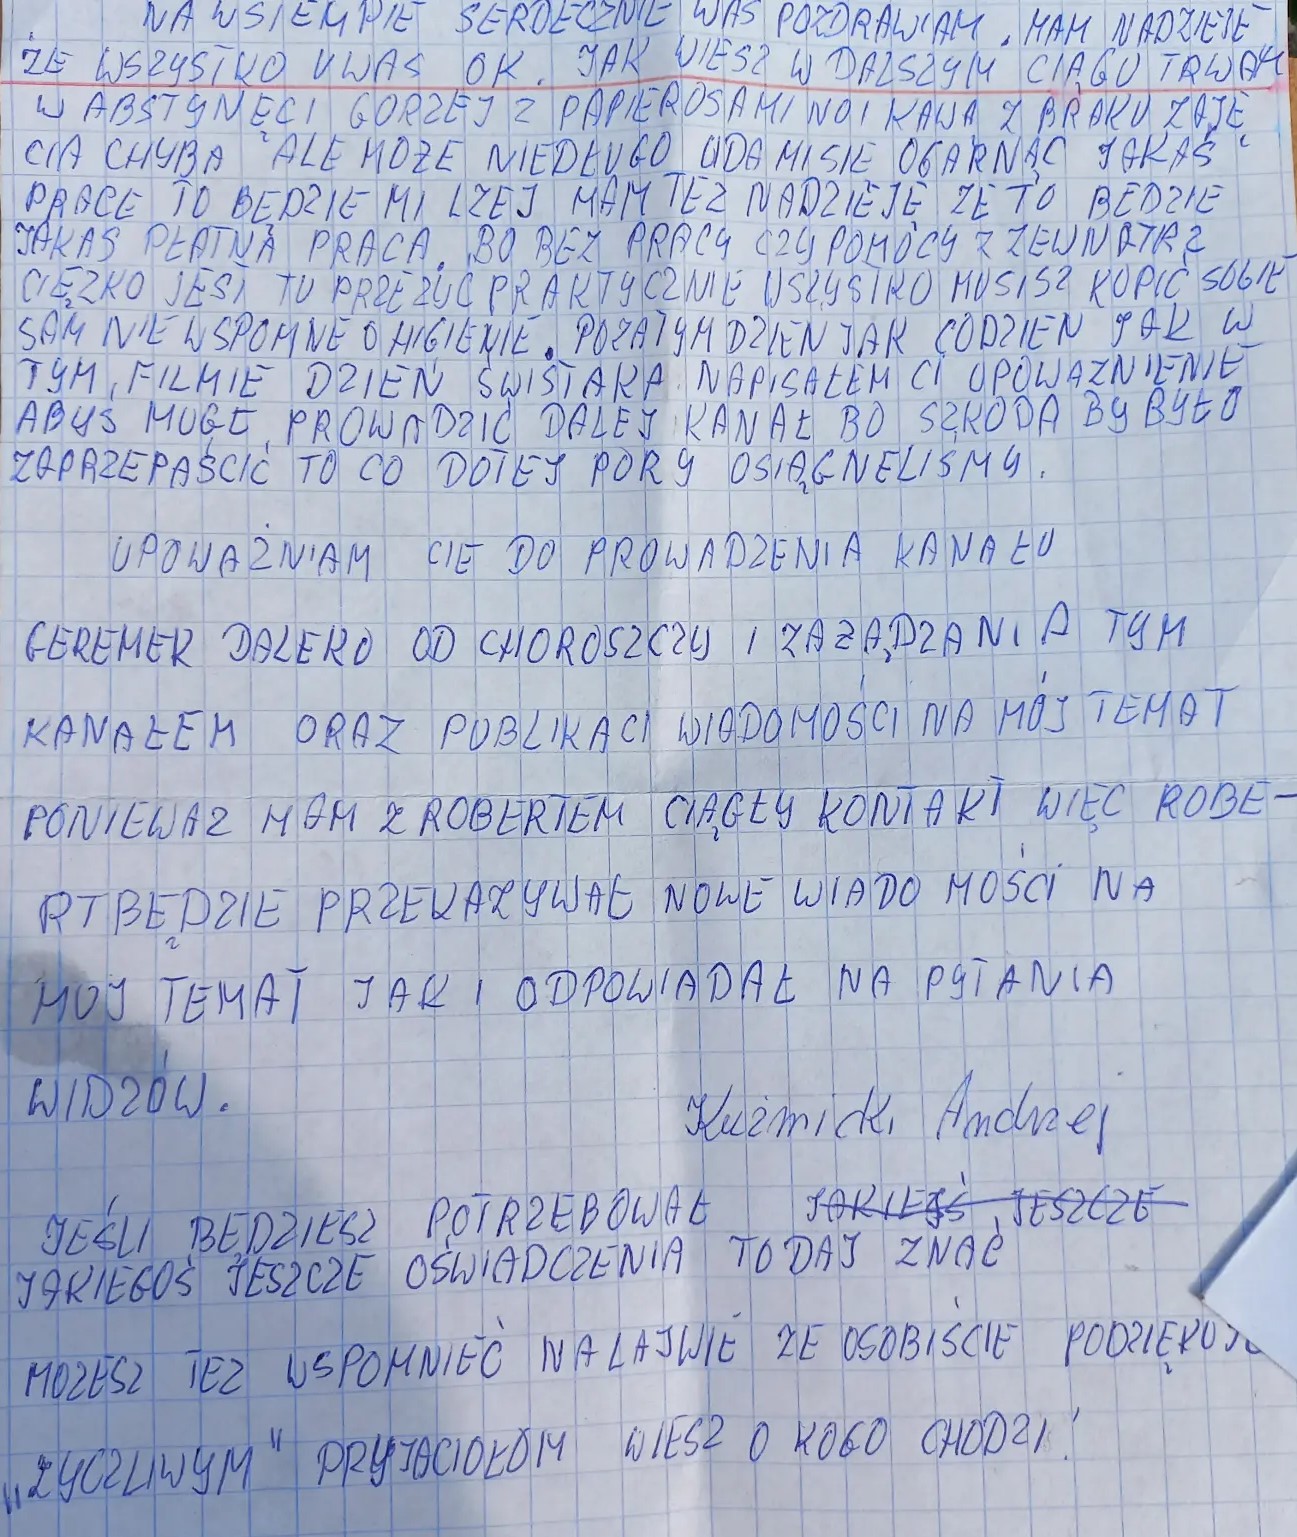 NA WSIEMPIE SERDECZNIE WAS POZDRAWIAM. MAM NADZIEJE
ŻE WSZYSTKO U WAS OK. JAK WIESZ W DALSZYM CIĄGU TRWAM
W ABSTYNĘCI GORZEJ Z PAPIEROSAMI NO I KAWA Z BRAKU ZAJĘ
CIA CHYBA ALE MOŻE NIEDŁUGO UDA MI SIE OGARNĄĆ JAKAŚ
PRACE TO BĘDZIE MI LZEJ MAM TEZ NADZIEJE ZE TO BEDZIE
JAKAS PŁATNA PRACA. BO BEZ PRACY CZY POMOCY Z ZEWNATRZ
CIĘZKO JEST TU PRZEZYĆ PRAKTYCZNIE WSZYSTKO MUSISZ KUPIĆ SOBIE
SAM NIE WSPOMNE O HIGIENIE. POZATYM DZIEN JAK CODZIEN JAK W
TYM FILMIE DZIEŃ ŚWISTAKA NAPISAŁEM CI UPOWAZNIENIE
ABYS MUGŁ PROWADZIĆ DALEJ KANAŁ BO SZKODA BY BYŁO
ZAPRZEPAŚCIĆ TO CO DOTEJ PORY OSIĄGNELIŚMY.
UPOWAŻNIAM CIE DO PROWADZENIA KANAŁU
GEREMEK DALEKO OD CHOROSZCZY I ZAZĄDZANIA TYM
KANAŁEM ORAZ PUBLIKACI WIADOMOŚCI NA MÓJ TEMAT
PONIEWAZ MAM Z ROBERTEM CIĄGŁY KONTAKT WIĘC ROBE-
RT BĘDZIE PRZEKAZYWAŁ NOWE WIADOMOŚCI NA
MOJ TEMAT JAK I ODPOWIADAŁ NA PYTANIA
WIDZÓW.
Kuźmicki Andrzej
JEŚLI BĘDZIESZ POTRZEBOWAŁ JAKIEJŚ JESZCZE
JAKIEGOŚ JESZCZE OŚWIADCZENIA TO DAJ ZNAĆ
MOZESZ TEZ WSPOMNIEĆ NA LAJWIE ZE OSOBIŚCIE PODZIĘKUJE
„ZYCZLIWYM" PRYJACIOŁOM WIESZ O KOGO CHODZI!